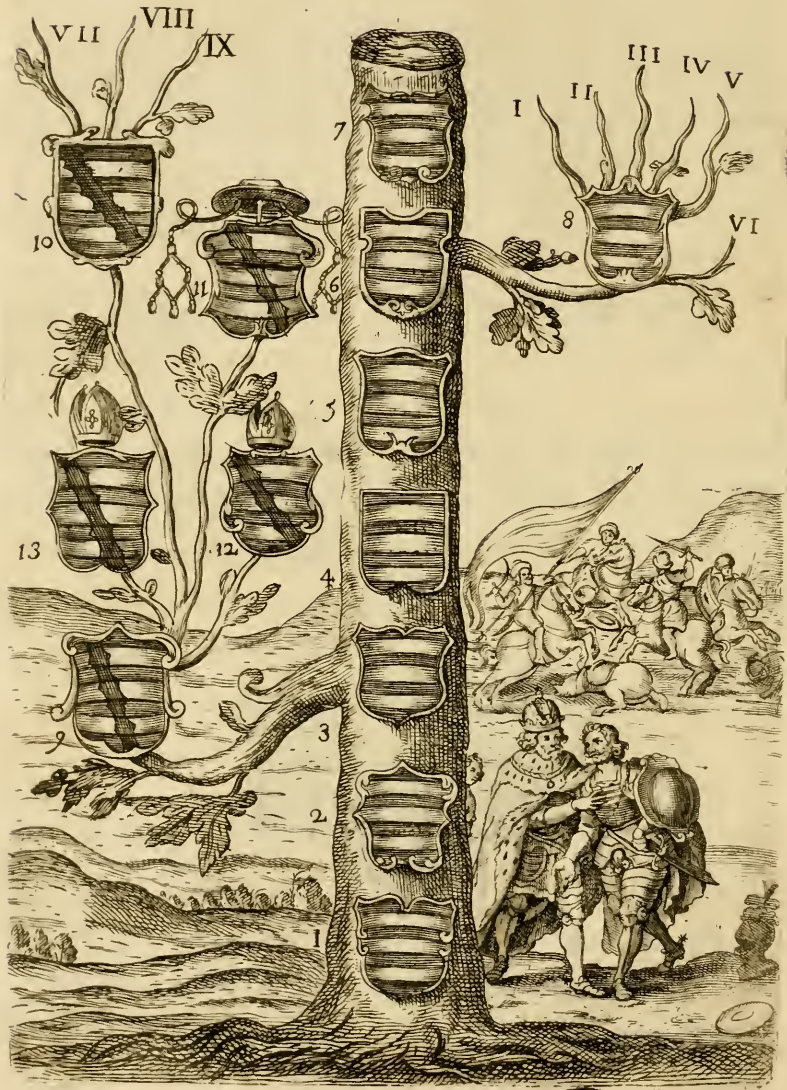 VII VIII IX
III IV V
I II
7
8
VI
10
11 6
5
13 12
4
9
3
2
1